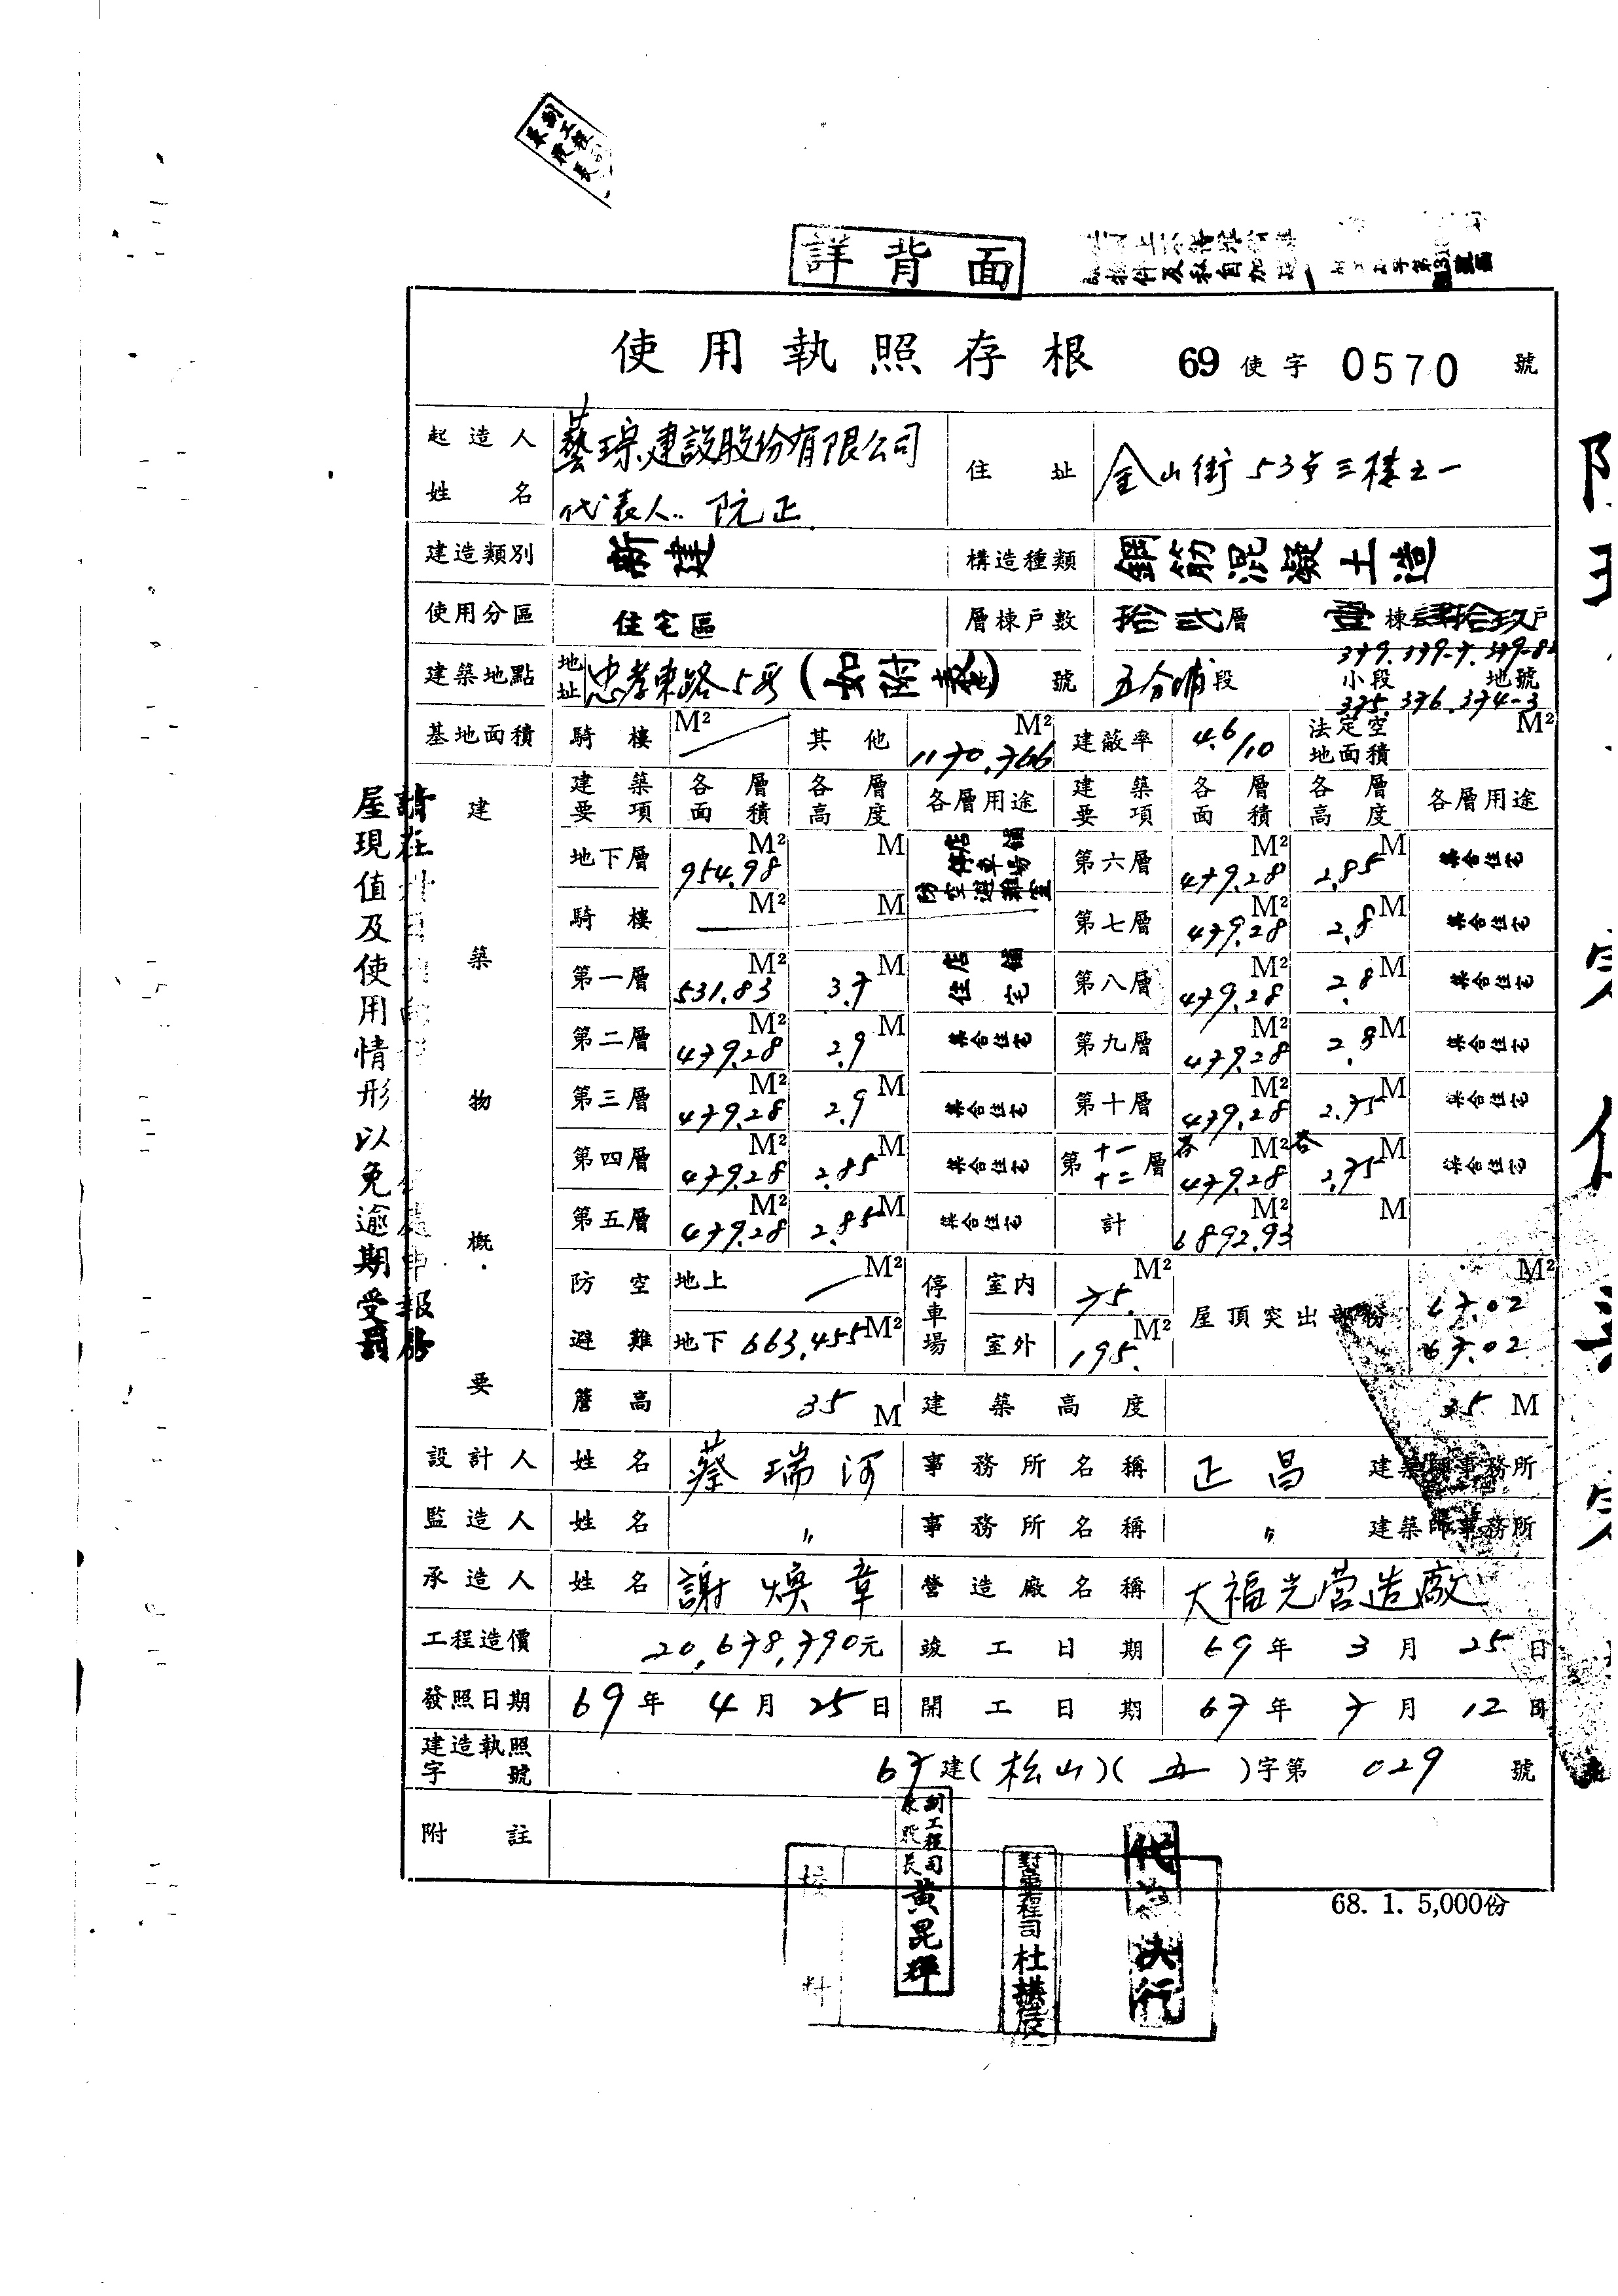 詳背面
使用執照存根 69 使字 0570 號
起造人姓名 藝琮建設股份有限公司 代表人:阮正 住址 金山街53号三樓之一
建造類別 新建 構造種類 鋼筋混凝土造
使用分區 住宅區 層棟戶數 拾弍層 壹棟肆拾玖戶
建築地點 地址 忠孝東路5段 號 五分埔段 小段 地號
379.379-7.379-8
375.376.374-3
基地面積 騎樓 M² 其他 1170.766 M² 建蔽率 4.6/10 法定空地面積 M²
建築物概要
建築要項 各層面積 各層高度 各層用途 建築要項 各層面積 各層高度 各層用途
地下層 954.98 M² M 店舖 停車場 防空避難室 第六層 479.28 M² 2.85 M 集合住宅
騎樓 M² M 第七層 479.28 M² 2.8 M 集合住宅
第一層 531.83 M² 3.7 M 店舖 住宅 第八層 479.28 M² 2.8 M 集合住宅
第二層 479.28 M² 2.9 M 集合住宅 第九層 479.28 M² 2.8 M 集合住宅
第三層 479.28 M² 2.9 M 集合住宅 第十層 479.28 M² 2.75 M 集合住宅
第四層 479.28 M² 2.85 M 集合住宅 第十一十二層 各 479.28 M² 各 2.75 M 集合住宅
第五層 479.28 M² 2.85 M 集合住宅 計 6892.93 M² M
防空避難 地上 M² 停車場 室內 75. M² 屋頂突出部份 67.02 M²
地下 663.455 M² 室外 195. M² 67.02
簷高 35 M 建築高度 35 M
設計人 姓名 蔡瑞河 事務所名稱 正昌 建築師事務所
監造人 姓名 〃 事務所名稱 〃 建築師事務所
承造人 姓名 謝煥章 營造廠名稱 大福光营造廠
工程造價 20,678,790元 竣工日期 69年 3月 25日
發照日期 69年 4月 25日 開工日期 67年 7月 12日
建造執照字號 67建(松山)(五)字第 029 號
附註
68. 1. 5,000份
屋現值及使用情形以免逾期受罰
校對
副工程司
股長
黃昆輝
工程司
代
決行